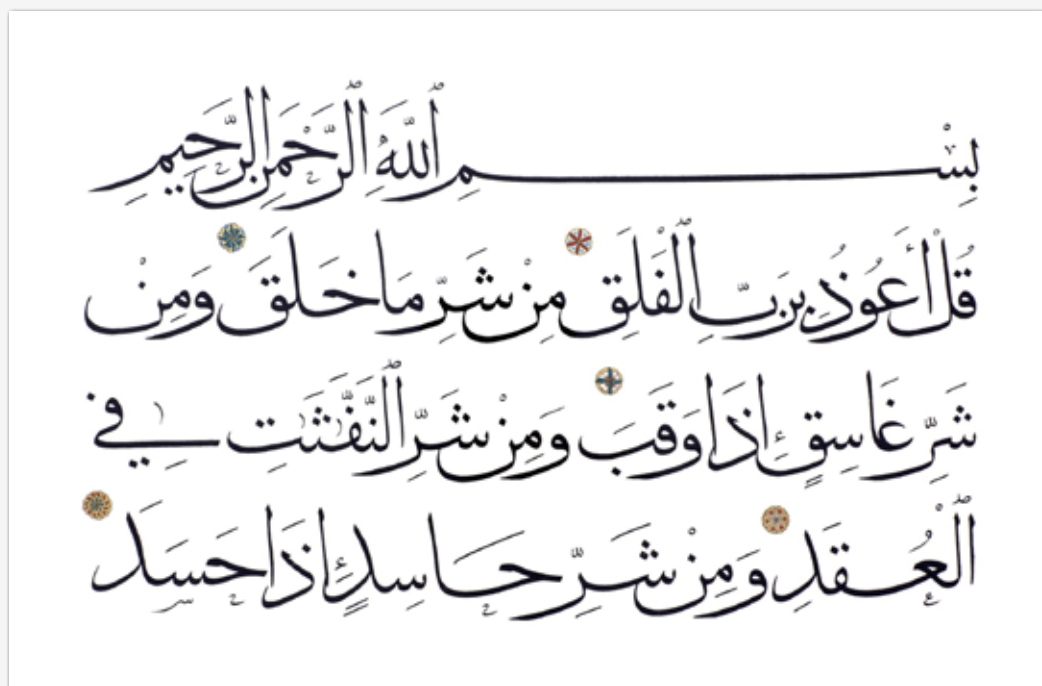 بِسْمِ ٱللَّهِ ٱلرَّحْمَنِ ٱلرَّحِيمِ
قُلْ أَعُوذُ بِرَبِّ ٱلْفَلَقِ مِنْ شَرِّ مَا خَلَقَ وَمِنْ
شَرِّ غَاسِقٍ إِذَا وَقَبَ وَمِنْ شَرِّ ٱلنَّفَّٰثَٰتِ فِي
ٱلْعُقَدِ وَمِنْ شَرِّ حَاسِدٍ إِذَا حَسَدَ